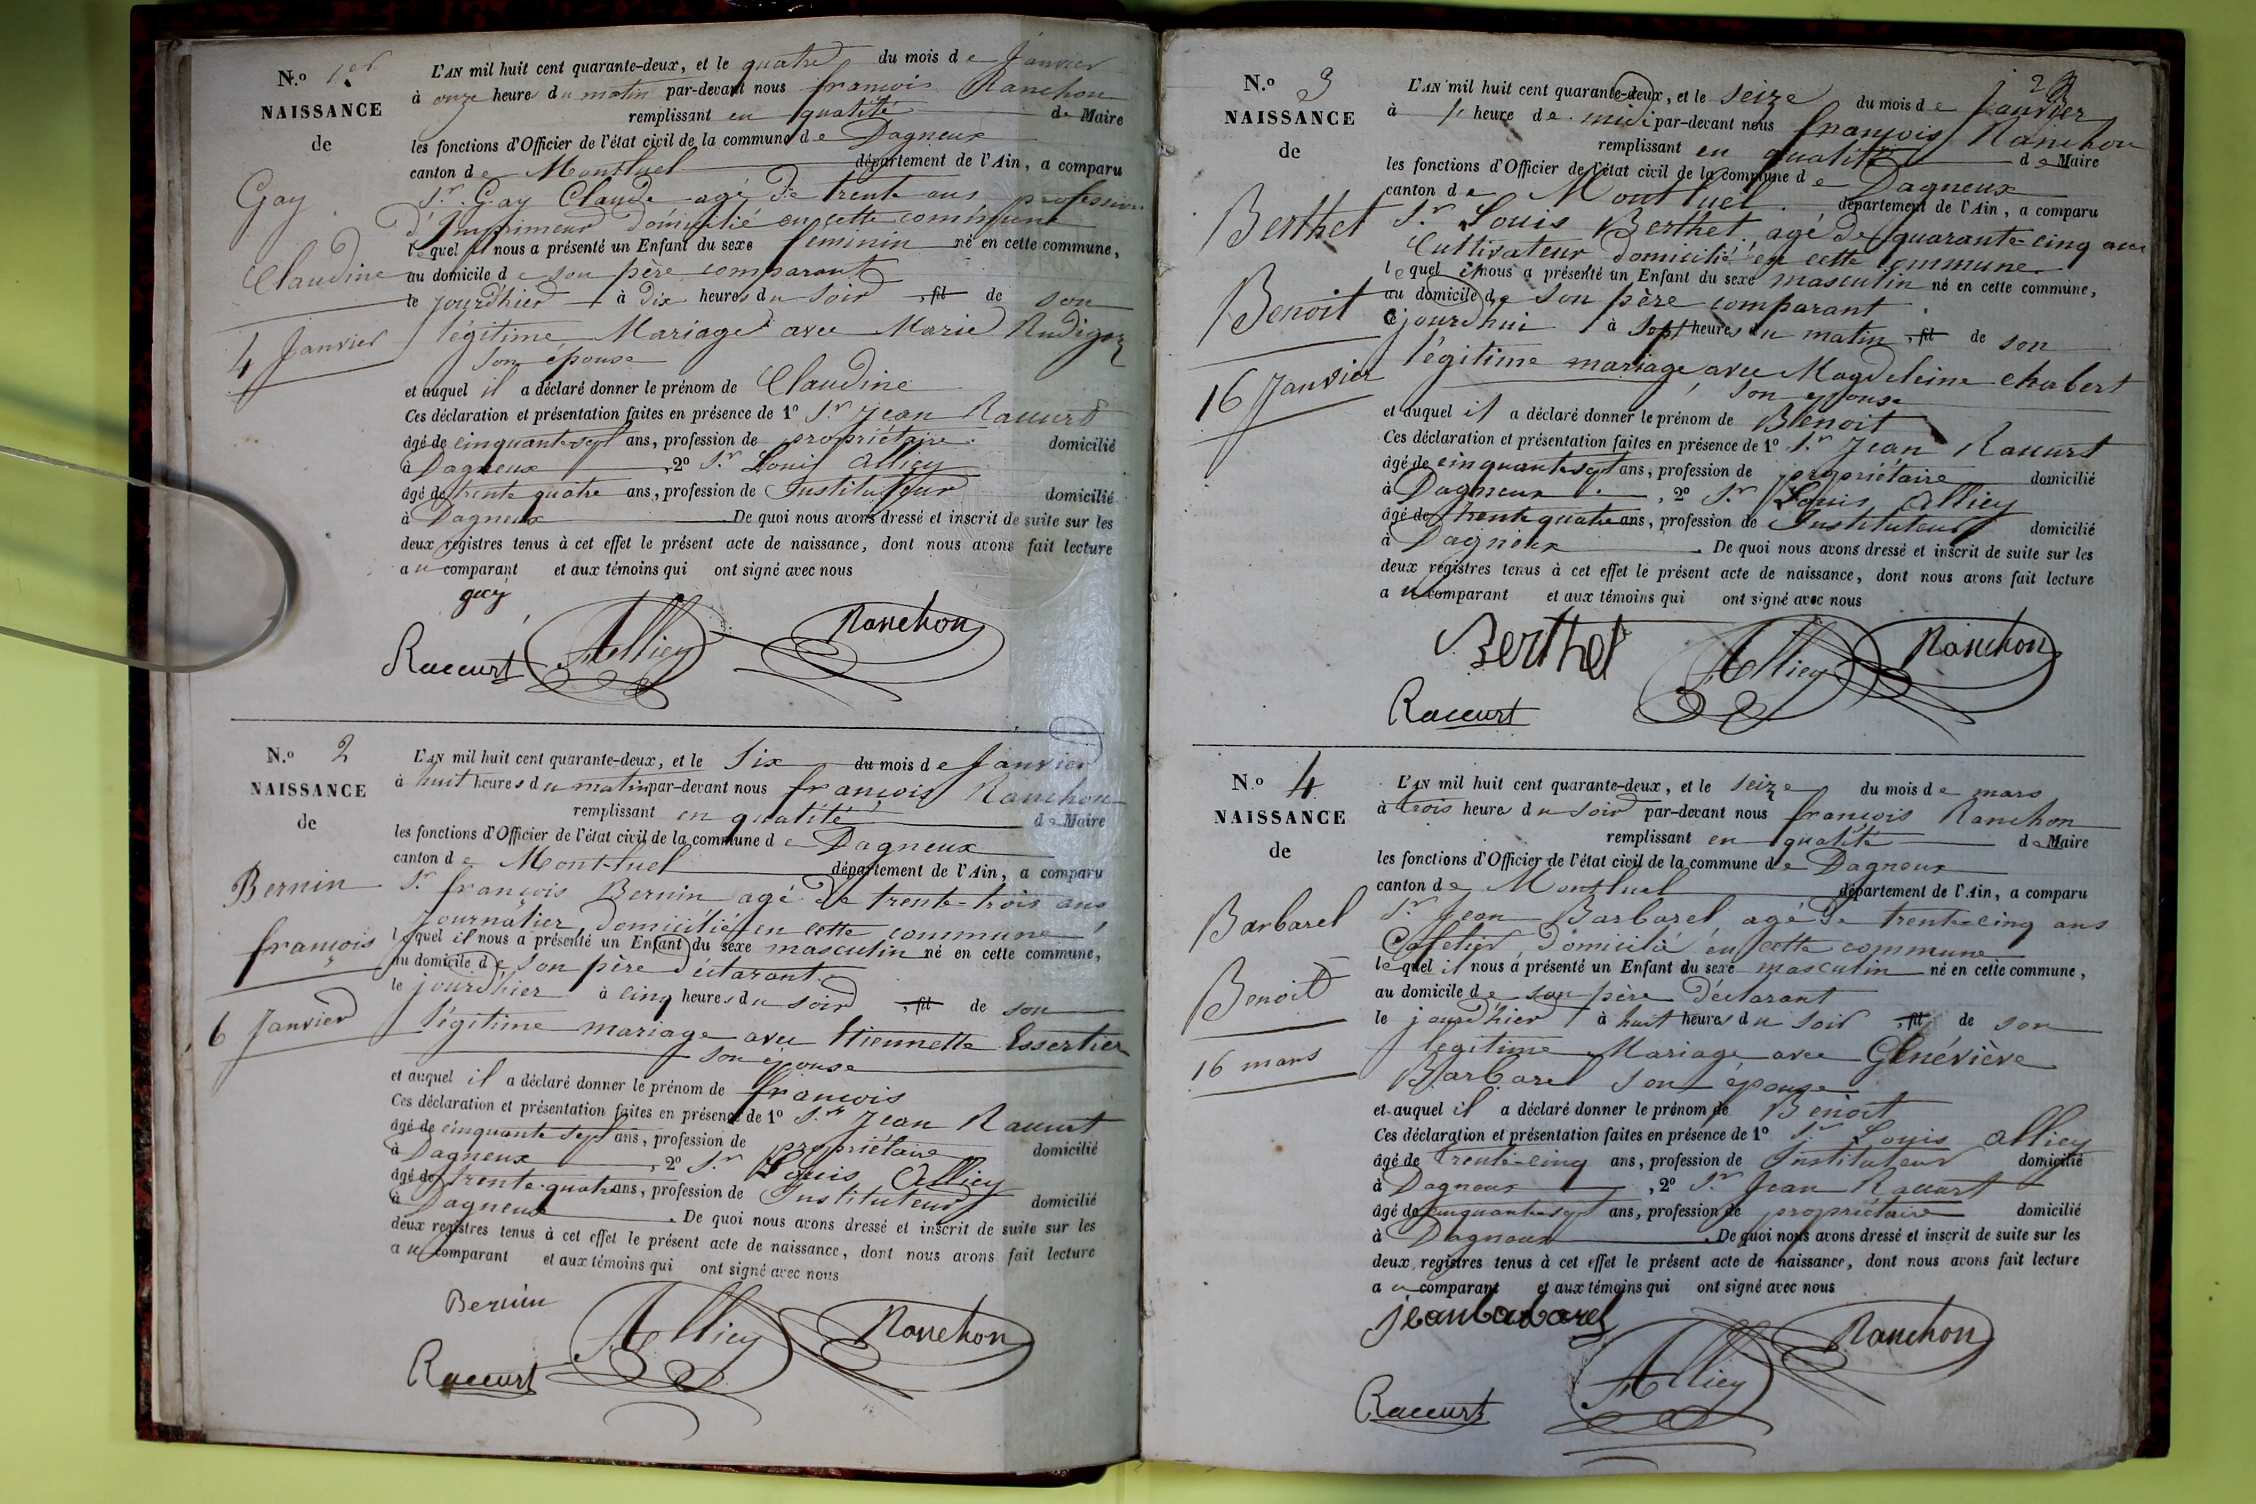 N.º 1er
NAISSANCE
de
Gay
Claudine
4 Janvier
L'AN mil huit cent quarante-deux, et le quatre du mois de Janvier
à onze heures du matin par-devant nous françois Ranchon
remplissant en qualité de Maire
les fonctions d'Officier de l'état civil de la commune de Dagneux
canton de Montluel département de l'Ain, a comparu
Sr. Gay Claude agé de trente ans profession
d'Imprimeur domicilié en cette commune
lequel il nous a présenté un Enfant du sexe feminin né en cette commune,
au domicile de son père comparant
le jourd'hier à dix heures du soir , fil de son
légitime Mariage avec Marie Rudigoz
son épouse
et auquel il a déclaré donner le prénom de Claudine
Ces déclaration et présentation faites en présence de 1º Sr. Jean Raccurt
âgé de cinquante sept ans, profession de propriétaire domicilié
à Dagneux , 2º Sr. Louis Alliey
âgé de trente quatre ans, profession de Instituteur domicilié
à Dagneux . De quoi nous avons dressé et inscrit de suite sur les
deux registres tenus à cet effet le présent acte de naissance, dont nous avons fait lecture
au comparant et aux témoins qui ont signé avec nous
gay
Raccurt Alliey Ranchon
N.º 2
NAISSANCE
de
Bernin
françois
6 Janvier
L'AN mil huit cent quarante-deux, et le Six du mois de Janvier
à huit heures du matin par-devant nous françois Ranchon
remplissant en qualité de Maire
les fonctions d'Officier de l'état civil de la commune de Dagneux
canton de Mont-luel département de l'Ain, a comparu
Sr. françois Bernin agé de trente-trois ans
journalier, domicilié en cette commune
lequel il nous a présenté un Enfant du sexe masculin né en cette commune,
au domicile de son père déclarant
le jourd'hier à cinq heures du soir , fil de son
légitime mariage avec Etiennette Essertier
son épouse
et auquel il a déclaré donner le prénom de françois
Ces déclaration et présentation faites en présence de 1º Sr. Jean Raccurt
âgé de cinquante sept ans, profession de propriétaire domicilié
à Dagneux , 2º Sr. Louis Alliey
âgé de trente-quatre ans, profession de Instituteur domicilié
à Dagneux . De quoi nous avons dressé et inscrit de suite sur les
deux registres tenus à cet effet le présent acte de naissance, dont nous avons fait lecture
au comparant et aux témoins qui ont signé avec nous
Bernin
Raccurt Alliey Ranchon
2
N.º 3
NAISSANCE
de
Berthet
Benoit
16 Janvier
L'AN mil huit cent quarante-deux, et le seize du mois de Janvier
à 1 heure de midi par-devant nous françois Ranchon
remplissant en qualité de Maire
les fonctions d'Officier de l'état civil de la commune de Dagneux
canton de Montluel département de l'Ain, a comparu
Sr. Louis Berthet agé de quarante-cinq ans
Cultivateur domicilié en cette commune
lequel il nous a présenté un Enfant du sexe masculin né en cette commune,
au domicile de son père comparant
cejourd'hui à sept heures du matin , fil de son
légitime mariage avec Magdeleine chabert
son épouse
et auquel il a déclaré donner le prénom de Benoit
Ces déclaration et présentation faites en présence de 1º Sr. Jean Raccurt
âgé de cinquante sept ans, profession de propriétaire domicilié
à Dagneux , 2º Sr. Louis Alliey
âgé de trente quatre ans, profession de Instituteur domicilié
à Dagneux . De quoi nous avons dressé et inscrit de suite sur les
deux registres tenus à cet effet le présent acte de naissance, dont nous avons fait lecture
au comparant et aux témoins qui ont signé avec nous
Berthet Alliey Ranchon
Raccurt
N.º 4
NAISSANCE
de
Barbarel
Benoit
16 mars
L'AN mil huit cent quarante-deux, et le seize du mois de mars
à trois heures du soir par-devant nous françois Ranchon
remplissant en qualité de Maire
les fonctions d'Officier de l'état civil de la commune de Dagneux
canton de Montluel département de l'Ain, a comparu
Sr. Jean Barbarel agé de trente-cinq ans
Cafetier domicilié en cette commune
lequel il nous a présenté un Enfant du sexe masculin né en cette commune,
au domicile de son père déclarant
le jourd'hier à huit heures du soir , fil de son
légitime Mariage avec Génévière
Barbarel son épouse
et auquel il a déclaré donner le prénom de Benoit
Ces déclaration et présentation faites en présence de 1º Sr. Louis Alliey
âgé de trente-cinq ans, profession de Instituteur domicilié
à Dagneux , 2º Sr. Jean Raccurt
âgé de cinquante sept ans, profession de propriétaire domicilié
à Dagneux . De quoi nous avons dressé et inscrit de suite sur les
deux registres tenus à cet effet le présent acte de naissance, dont nous avons fait lecture
au comparant et aux témoins qui ont signé avec nous
jean barbarel
Raccurt Alliey Ranchon